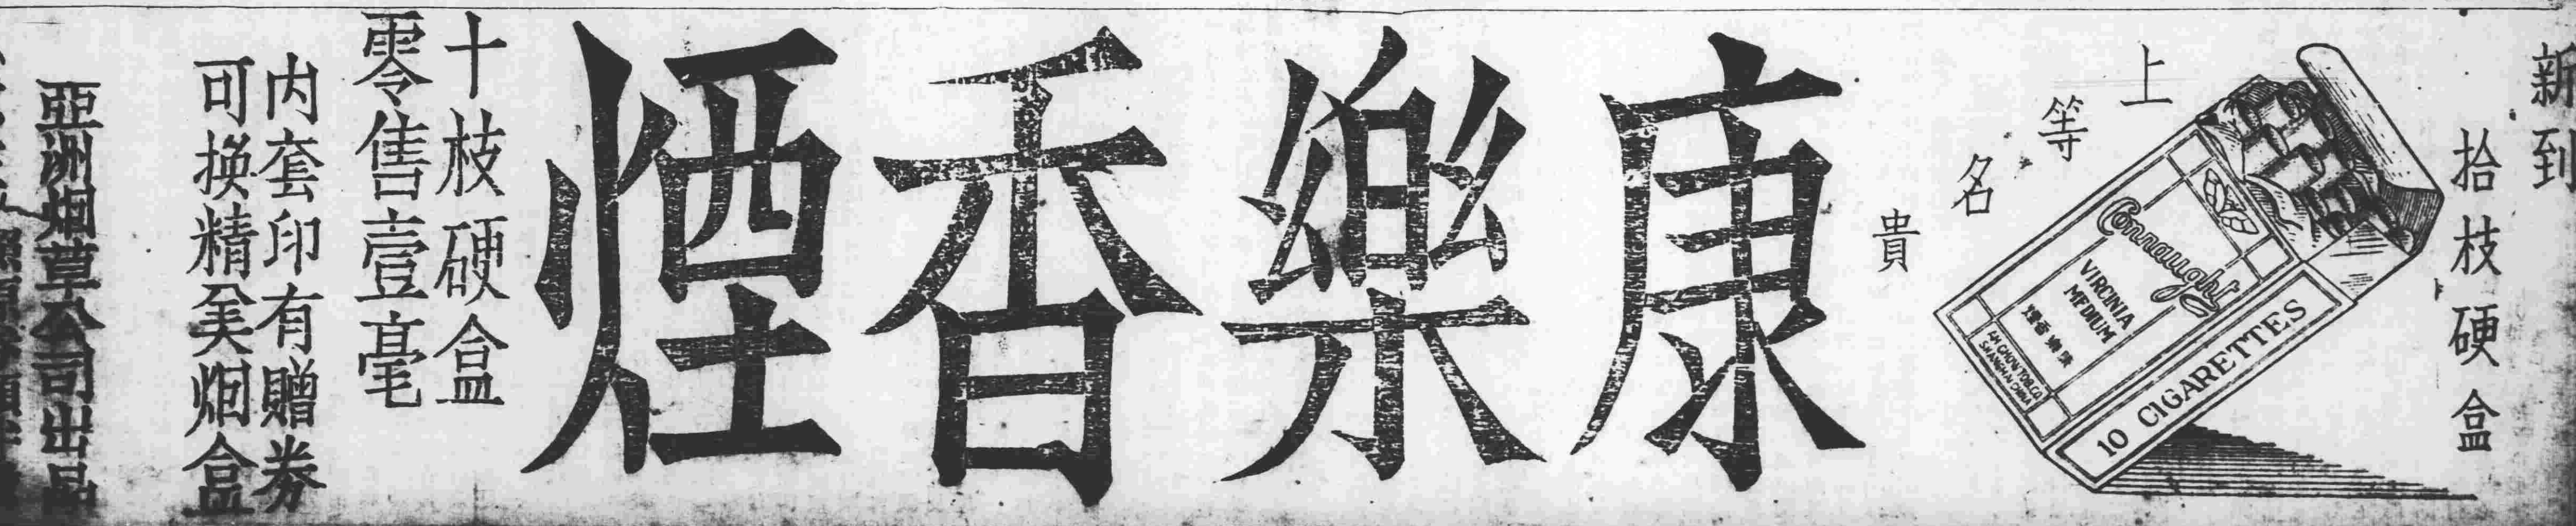 新到
拾枝硬盒
上等名貴
Connaught
VIRGINIA
MEDIUM
10 CIGARETTES
康樂香煙
十枝硬盒
零售壹毫
内套印有贈券
可换精美烟盒
亞洲烟草公司出品